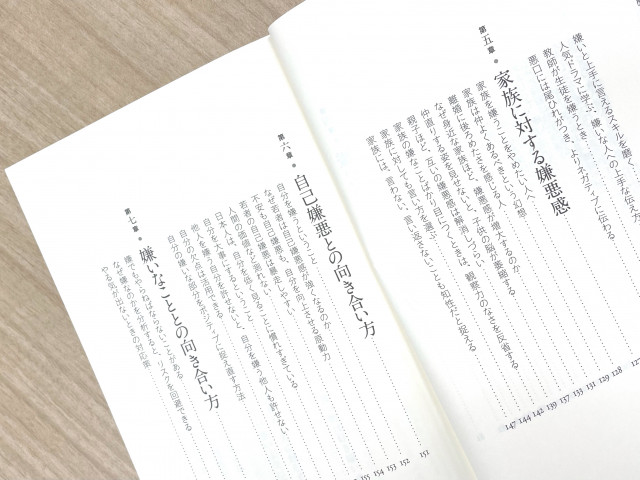 嫌いと上手に言えるスキルを磨
人気ドラマに学ぶ、嫌いな人への上手な伝え方
教師が生徒を嫌うとき
悪口には尾ひれがつき、よりネガティブに伝わる
127
第五章●家族に対する嫌悪感
家族を嫌うことをやめたい人へ
家族は仲よくあるべきという幻想
離婚に後ろめたさを感じる人へ
なぜ身近な家族ほど、嫌悪感が増大するのか
仲直りする姿を見せないと、子供の脳が萎縮する
親子ほど、互いの嫌悪感は解消しづらい
家族の嫌なことばかり目につくときは、観察力のなさを反省する
家族に対しても言い方を選ぶ
家族には、言わない、言い返さないことも知性だと捉える
128
129
131
133
137
139
142
144
147
第六章●自己嫌悪との向き合い方
自分を嫌うということ
なぜ若者は自己嫌悪感が強くなるのか
不安も自己嫌悪も、自分を向上させる原動力
若者の自己嫌悪は暴走しやすい
人間の価値など測れない
日本人は、自分を低く見ることに慣れすぎている
自分を大事にしないと、自分を嫌う他人も許せない
他人の欠点は活用できる
自分の嫌いな部分をポジティブに捉え直す方法
151
152
153
154
155
第七章●嫌いなこととの向き合い方
嫌でもやらねばならないことがある
なぜ嫌なのかを分析すると、リスクを回避できる
やる気が出ないときの対応策